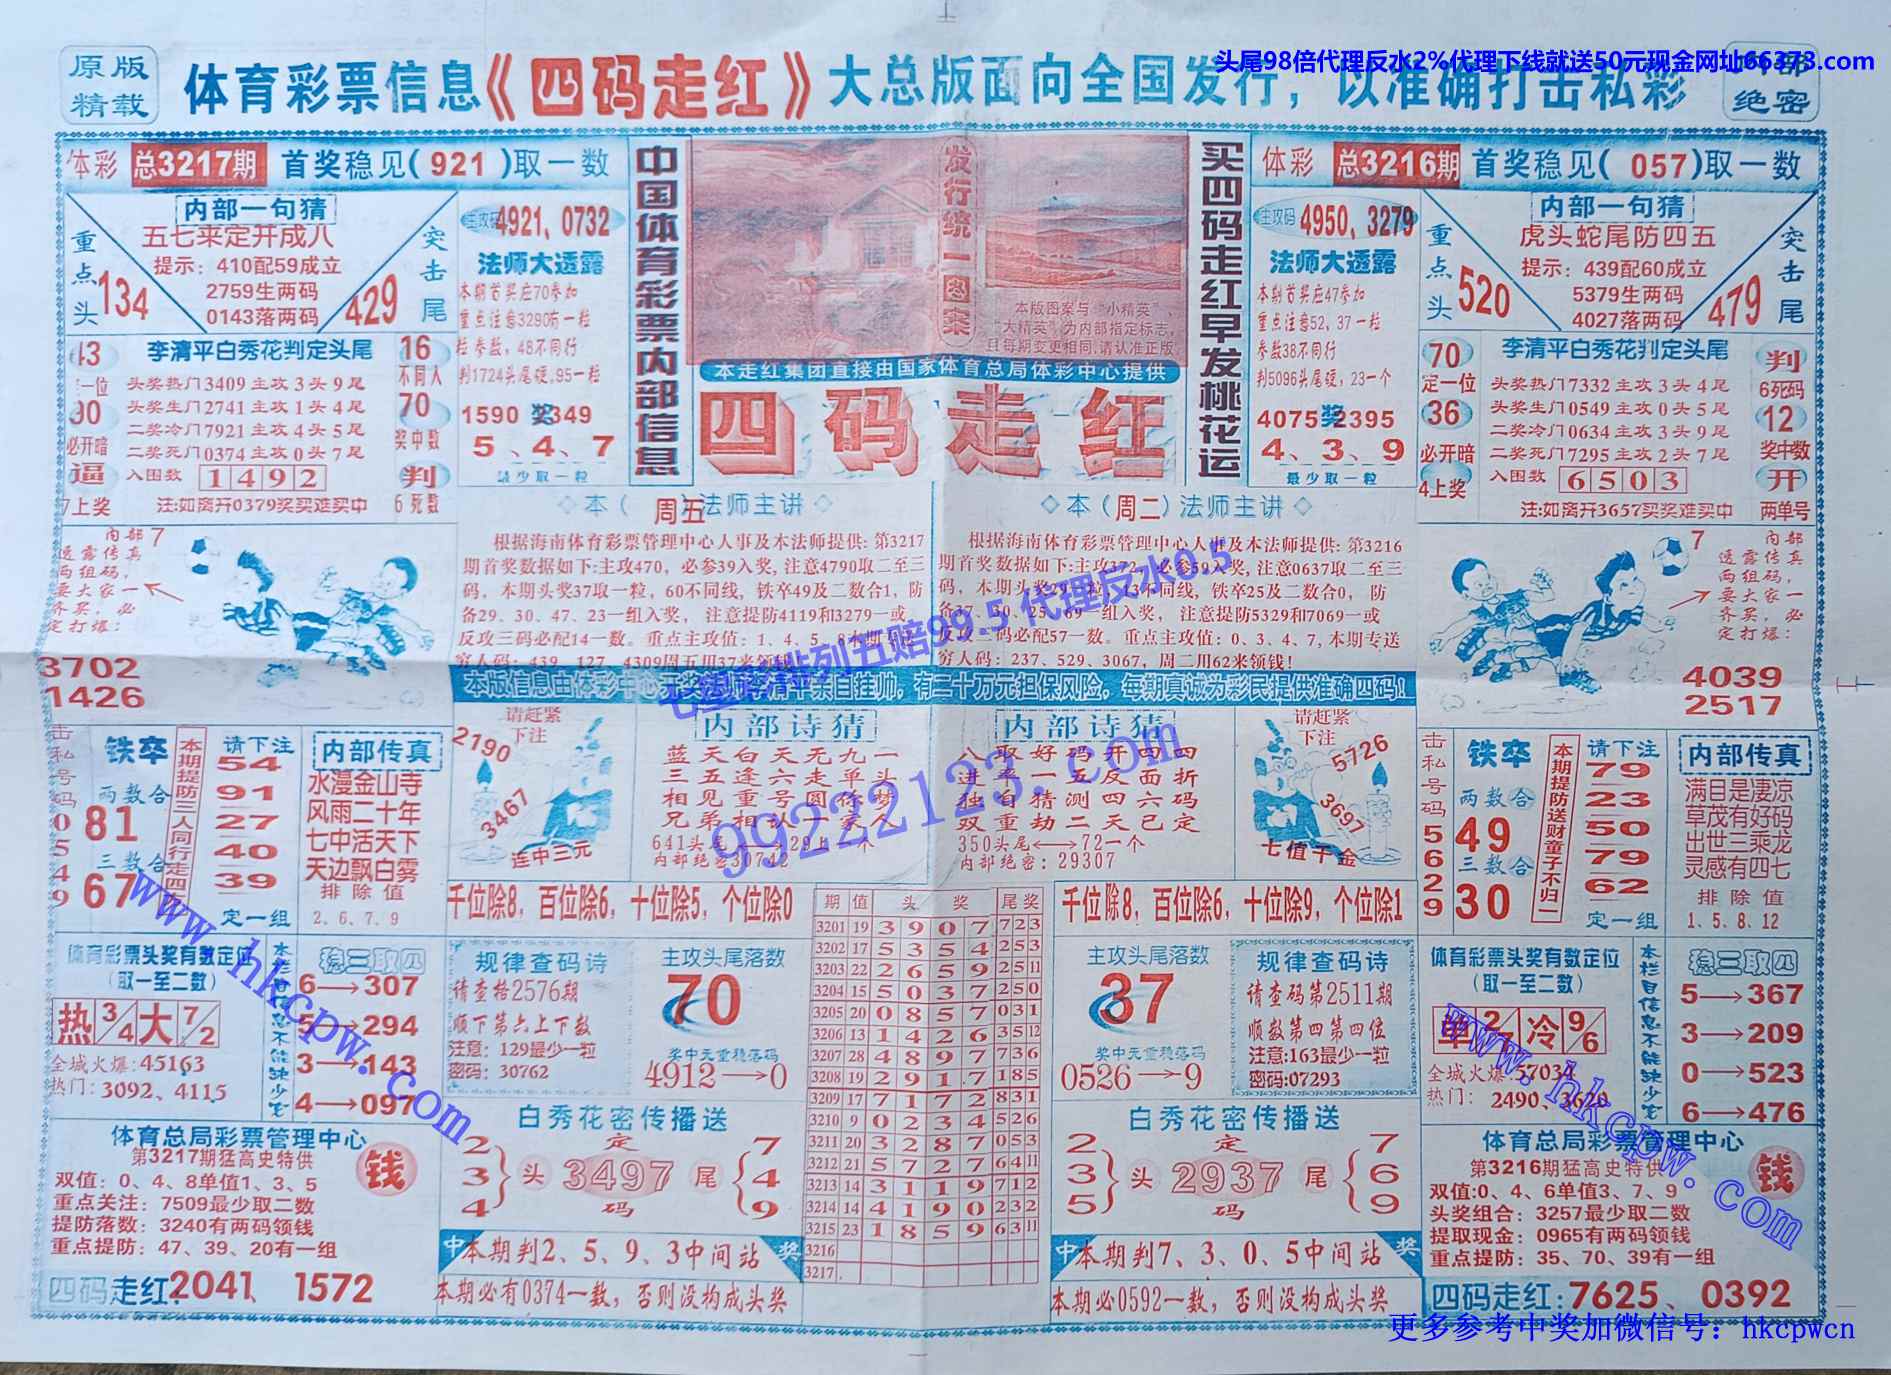 头尾98倍代理反水2%代理下线就送50元现金网址66373.com
原版
精载
体育彩票信息《四码走红》大总版面向全国发行，以准确打击私彩
绝密
体彩 总3217期 首奖稳见(921)取一数
内部一句猜
五七来定开成八
提示：410配59成立
2759生两码
0143落两码
重点头
134
突击尾
429
主攻码 4921、0732
法师大透露
本期首奖应70参加
重点注意3290有一粒
粒参数，48不同行
判1724头尾硬，95一粒
1590 奖 349
5、4、7
最少取一粒
中国体育彩票内部信息
发行统一图案
本版图案与“小精英”、
“大精英”为内部指定标志，
且每期变更相同，请认准正版
本走红集团直接由国家体育总局体彩中心提供
四码走红
买四码走红早发桃花运
体彩 总3216期 首奖稳见(057)取一数
主攻码 4950、3279
法师大透露
本期首奖应47参加
重点注意52，37一粒
参数38不同行
判5096头尾硬，23一个
4075 奖 2395
4、3、9
最少取一粒
内部一句猜
虎头蛇尾防四五
提示：439配60成立
5379生两码
4027落两码
重点头
520
突击尾
479
李清平白秀花判定头尾
头奖热门3409主攻3头9尾
头奖生门2741主攻1头4尾
二奖冷门7921主攻4头5尾
二奖死门0374主攻0头7尾
入围数 1492
注：如离开0379奖买难买中
43
一位
90
必开暗
逼
7上奖
16
不同人
70
奖中数
判
6死数
70
定一位
36
必开暗
4上奖
李清平白秀花判定头尾
头奖热门7332主攻3头4尾
头奖生门0549主攻0头5尾
二奖冷门0634主攻3头9尾
二奖死门7295主攻2头7尾
入围数 6503
注：如离开3657买奖难买中
判
6死码
12
奖中数
开
两单号
◇本（周五）法师主讲◇
根据海南体育彩票管理中心人事及本法师提供：第3217
期首奖数据如下：主攻470，必参39入奖，注意4790取二至三
码，本期头奖37取一粒，60不同线，铁卒49及二数合1，防
备29、30、47、23一组入奖，注意提防4119和3279一或
反攻三码必配14一数。重点主攻值：1、4、5、8本期
穷人码：439、127、4309周五用37来领钱！
◇本（周二）法师主讲◇
根据海南体育彩票管理中心人事及本法师提供：第3216
期首奖数据如下：主攻372，必参59入奖，注意0637取二至三
码，本期头奖29一粒，13不同线，铁卒25及二数合0，防
备37、30、25、69一组入奖，注意提防5329和7069一或
反攻二码必配57一数。重点主攻值：0、3、4、7，本期专送
穷人码：237、529、3067，周二用62来领钱！
本版信息由体彩中心开奖法师李清平亲自挂帅，有二十万元担保风险，每期真诚为彩民提供准确四码！
七星彩排列五赔99.5 代理反水0.5
99222123.com
内部 7
透露传真
两组码，
要大家一
齐买，必
定打爆：
3702
1426
7 内部
透露传真
两组码，
要大家一
齐买，必
定打爆：
4039
2517
击私号码 0549
铁卒
两数合
81
三数合
67
本期提防三人同行走四方
请下注
54
91
27
40
39
定一组
内部传真
水漫金山寺
风雨二十年
七中活天下
天边飘白雾
排除值
2、6、7、9
请赶紧
下注
2190
3467
连中三元
内部诗猜
蓝天白天无九一
三五逢六走单头
相见重号圆你梦
兄弟相认一家人
641头尾⟷29上一个
内部绝密30742
内部诗猜
八取好码开四四
进率一五反面折
独自猜测四六码
双重劫二天已定
350头尾⟷72一个
内部绝密：29307
请赶紧
下注
5726
3697
七值千金
击私号码 5629
铁卒
两数合
49
三数合
30
本期提防送财童子不归一
请下注
79
23
50
79
62
定一组
内部传真
满目是凄凉
草茂有好码
出世三乘龙
灵感有四七
排除值
1、5、8、12
千位除8，百位除6，十位除5，个位除0
千位除8，百位除6，十位除9，个位除1
期 值 头 奖 尾奖
3201 19 3 9 0 7 723
3202 17 5 3 5 4 253
3203 22 2 6 5 9 2511
3204 15 5 0 3 7 250
3205 20 0 8 5 7 031
3206 13 1 4 2 6 3512
3207 28 4 8 9 7 736
3208 19 2 9 1 7 185
3209 17 7 1 7 2 831
3210 9 0 2 3 4 526
3211 20 3 2 8 7 053
3212 21 5 7 2 7 6411
3213 14 3 1 1 9 712
3214 14 4 1 9 0 232
3215 23 1 8 5 9 6311
3216
3217
体育彩票头奖有数定位
(取一至二数)
热 3/4 大 7/2
全城火爆：45163
热门：3092、4115
稳三取四
6→307
5→294
3→143
4→097
规律查码诗
请查格2576期
顺下第六上下数
注意：129最少一粒
密码：30762
主攻头尾落数
70
奖中无重稳落码
4912→0
主攻头尾落数
37
奖中无重稳落码
0526→9
规律查码诗
请查码第2511期
顺数第四第四位
注意：163最少一粒
密码：07293
体育彩票头奖有数定位
(取一至二数)
单 2/7 冷 9/6
全城火爆：57034
热门：2490、3620
本栏目信息不能缺少它
稳三取四
5→367
3→209
0→523
6→476
体育总局彩票管理中心
第3217期猛高史特供
双值：0、4、8单值1、3、5
重点关注：7509最少取二数
提防落数：3240有两码领钱
重点提防：47、39、20有一组
钱
四码走红：2041、1572
白秀花密传播送
2
3
4
头
定
3497
码
尾
7
4
9
中 本期判2、5、9、3中间站 奖
本期必有0374一数，否则没构成头奖
白秀花密传播送
2
3
5
头
定
2937
码
尾
7
6
9
中 本期判7、3、0、5中间站 奖
本期必0592一数，否则没构成头奖
体育总局彩票管理中心
第3216期猛高史特供
双值：0、4、6单值3、7、9
头奖组合：3257最少取二数
提取现金：0965有两码领钱
重点提防：35、70、39有一组
钱
四码走红：7625、0392
www.hkcpw.com
www.hkcpw.com
更多参考中奖加微信号：hkcpwcn